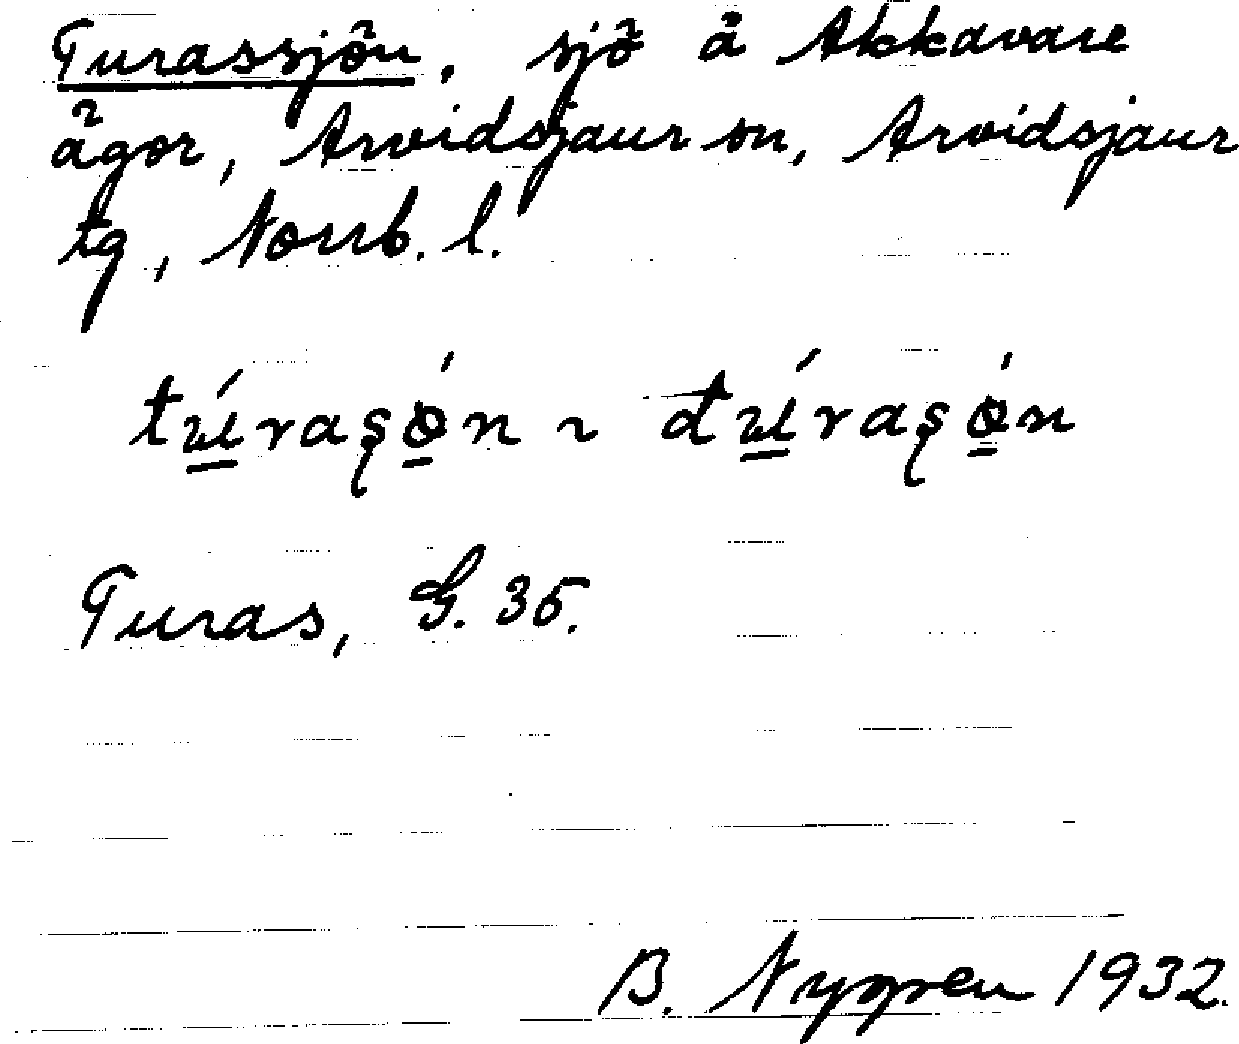 Turassjön, sjö å Akkavare
ägor, Arvidsjaur sn, Arvidsjaur
tg, Norrb. l.
tú̲raşǿ̲n ~ đú̲raşǿ̲n
Turas, G. 35.
B. Nygren 1932.